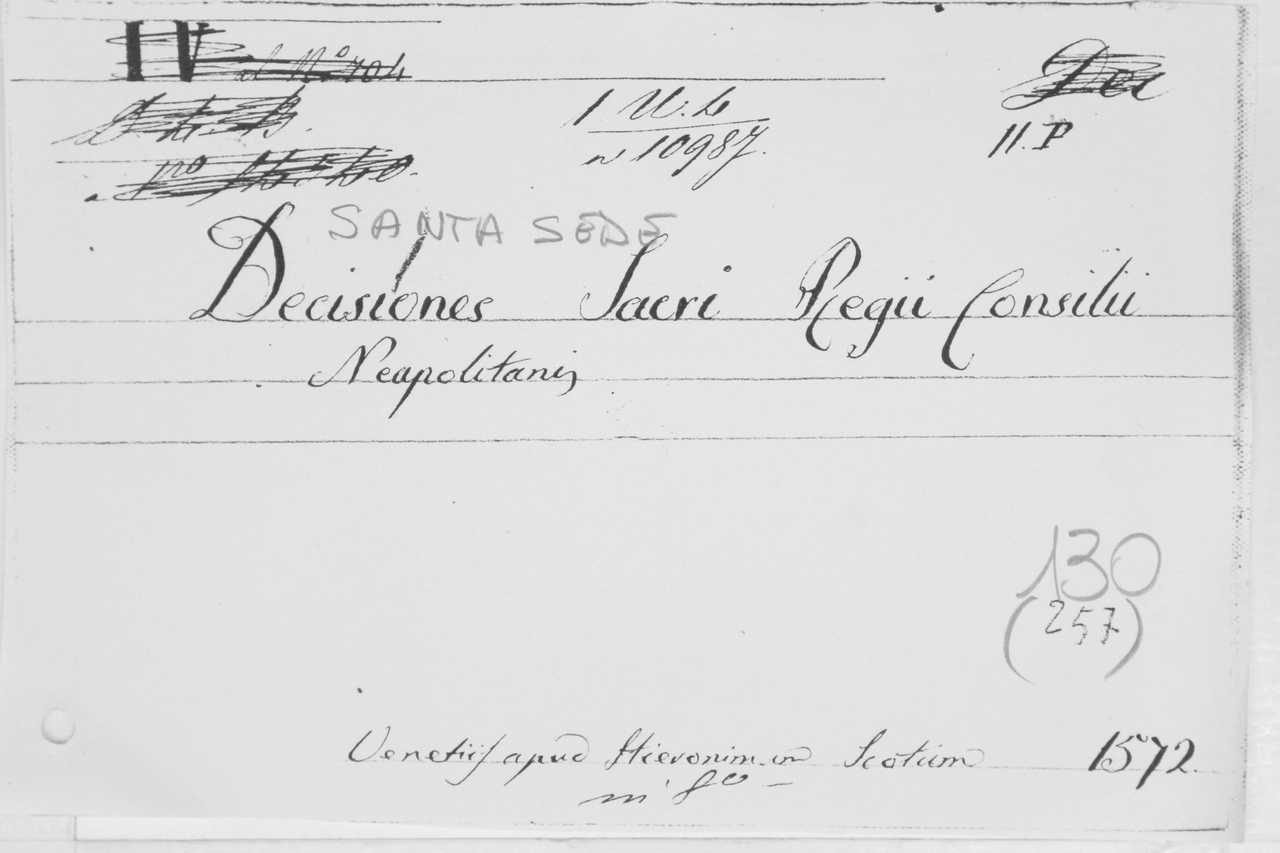 IV
al N° 704
1 U. 4
n 10987.
II. P
SANTA SEDE
Decisiones Sacri Regii Consilii
Neapolitani,
130
(257)
Venetiis apud Hieronimum Scotum 1572.
in 8° -